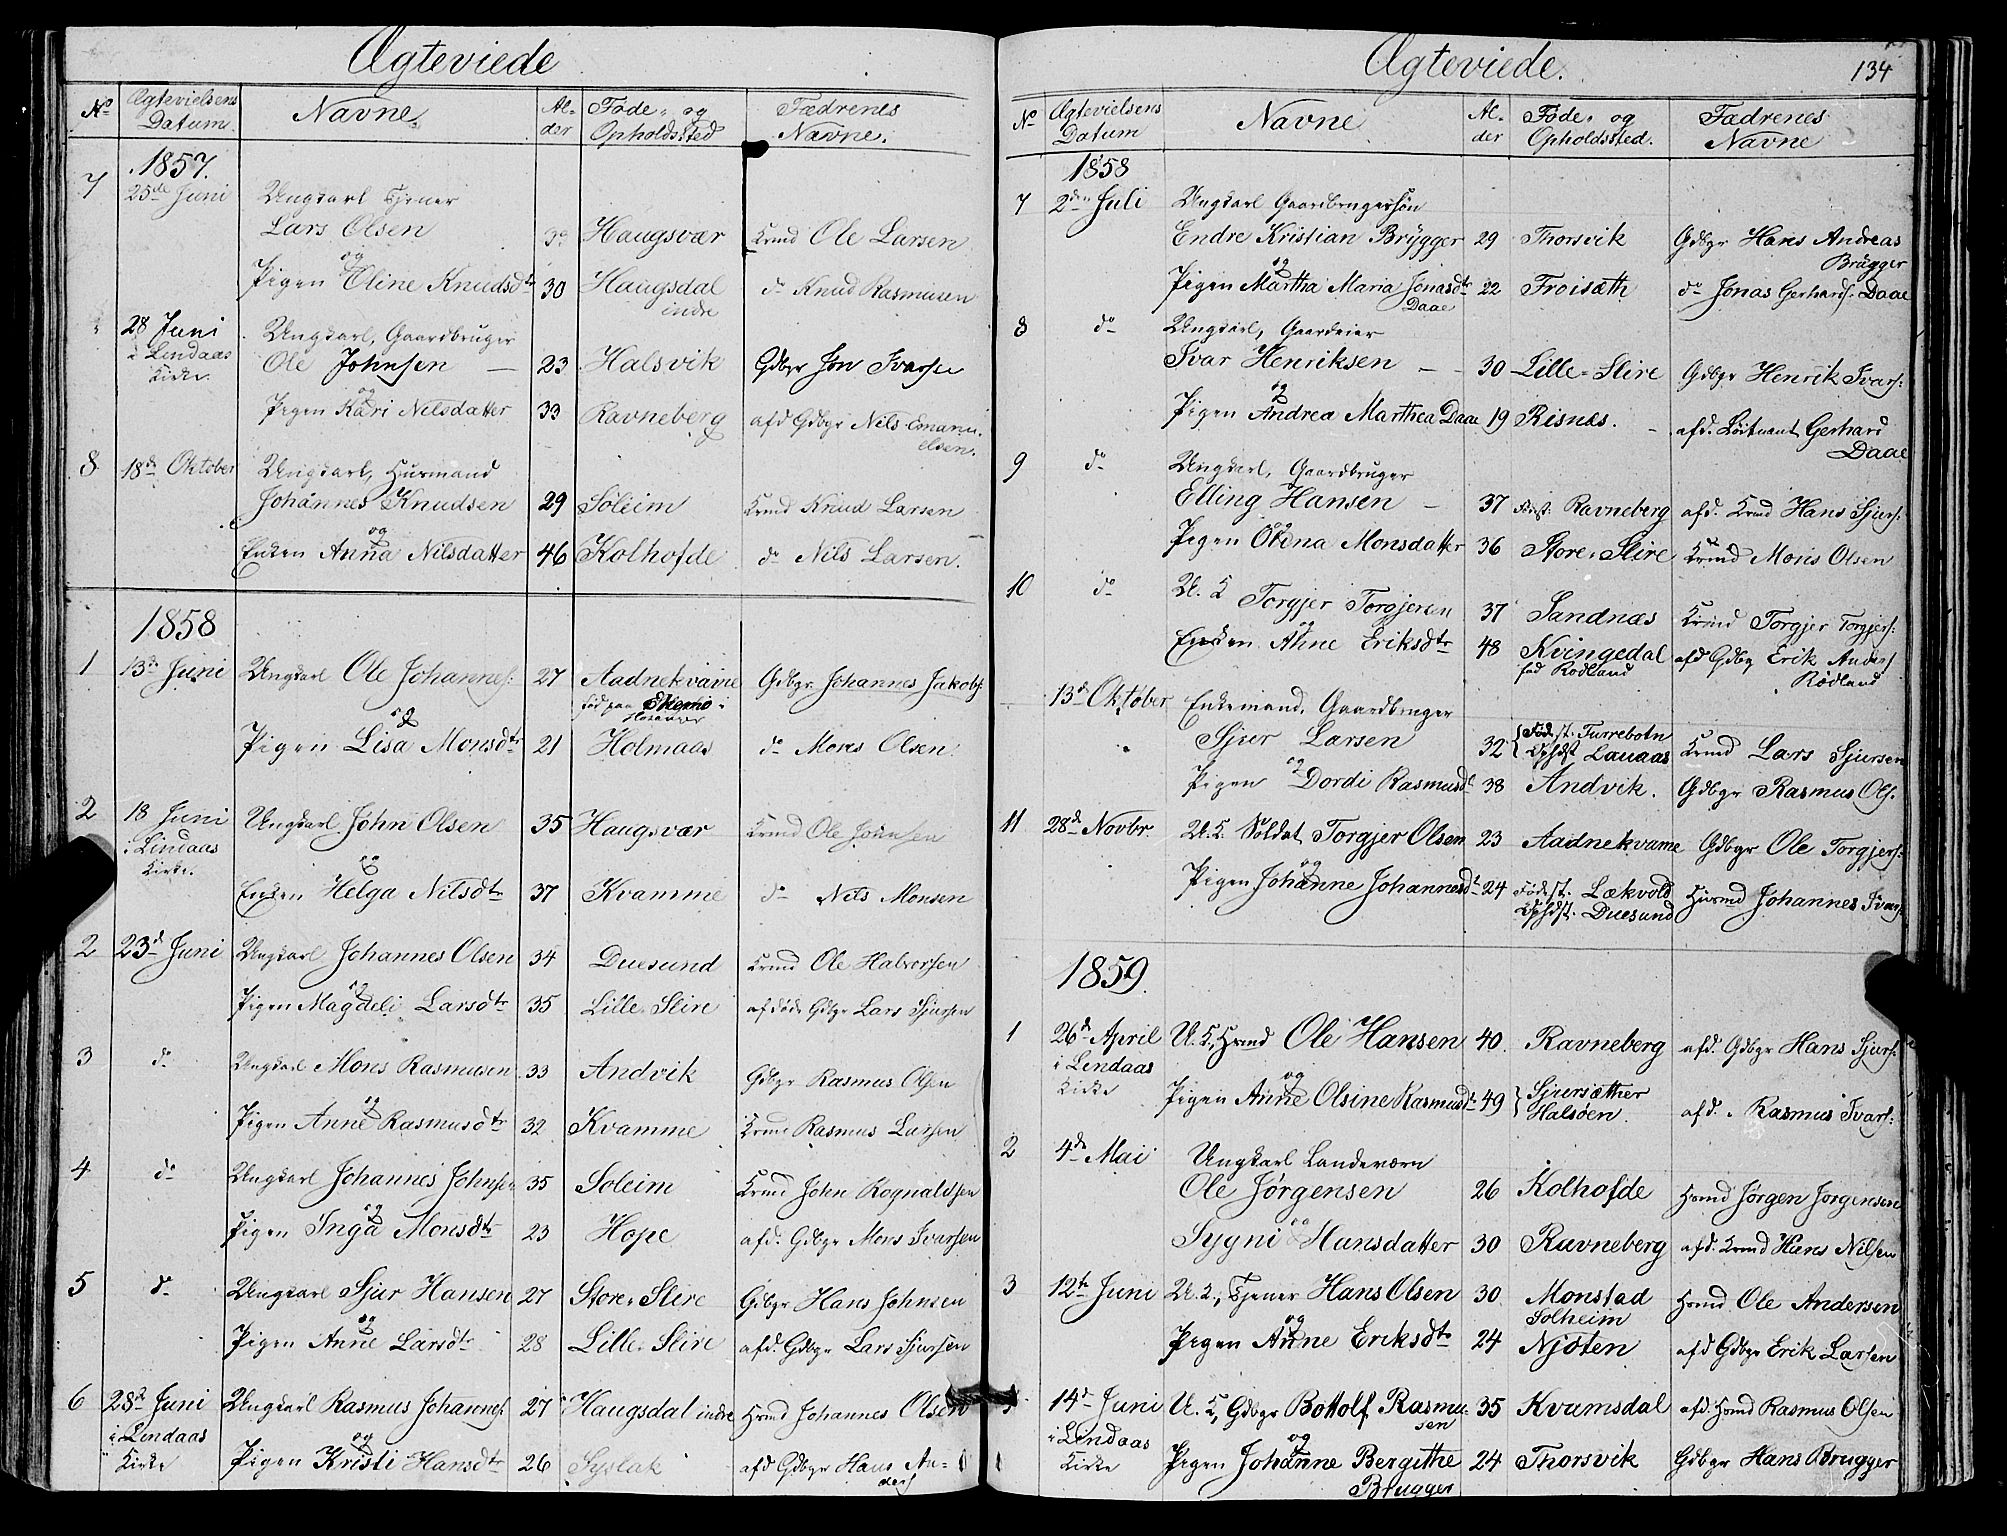 Ægteviede
No Ægtevielsens Datum. Navne. Al-der Føde- og Opholdssted Fædrenes Navne.
1857.
7 25de Juni Ungkarl Tjener
Lars Olsen Haugsvær Krmd Ole Larsen
og
Pigen Eline Knudsdtr 30 Haugsdal do Knud Rasmusen
indre
28 Juni Ungkarl, Gaardbruger
i Lindaas Ole Johnsen — 23 Halsvik Gdbgr Jon Ivarsen
Kirke. og
Pigen Kari Nilsdatter 33 Ravneberg afd Gdbgr Nils Emanu-
elsen.
8 18de Oktober Ungkarl, Husmand
Johannes Knudsen 29 Soleim Krmd Knud Larsen
og
Enken Anna Nilsdatter 46 Kolhofde do Nils Larsen.
1858
1 13de Juni Ungkarl Ole Johannes: 27 Aadnekvame Gdbgr Johannes Jakobs:
fød paa
og
Pigen Lisa Monsdtr 21 Holmaas do Mons Olsen
2 18 Juni Ungkarl John Olsen 35 Haugsvær Krmd Ole Johnsen
i Lindaas
Kirke. og
Enken Helga Nilsdtr 37 Kvamme do Nils Monsen
2 23d Juni Ungkarl Johannes Olsen 34 Duesund Krmd Ole Halvorsen
og
Pigen Magdeli Larsdtr 35 Lille-Slire afdøde Gdbgr Lars Sjursen
3 do Ungkarl Mons Rasmusen 33 Andvik Gdbgr Rasmus Olsen
og
Pigen Anne Rasmusdtr 32 Kvamme Krmd Rasmus Larsen
4 do Ungkarl Johannes Johnsen 35 Soleim Krmd John Rognaldsen
og
Pigen Inga Monsdtr 23 Hope afd. Gdbgr Mons Ivarsen
5 do Ungkarl Sjur Hansen 27 Store-Slire Gdbgr Hans Johnsen
og
Pigen Anne Larsdtr 28 Lille-Slire afd. Gdbgr Lars Sjursen
6 28d Juni Ungkarl Rasmus Johannes: 27 Haugsdal indre Hsmd Johannes Olsen
i Lindaas og
Kirke Pigen Kristi Hansdtr 26 Syslak afd Gdbgr Hans An-
ders
Ægteviede. 134
No Ægtevielsens Datum Navne Al-der Føde- og Opholdssted. Fædrenes Navne
1858
7 2den Juli Ungkarl Gaardbrugersøn
Endre Kristian Brygger 29 Thorsvik Gdbgr Hans Andreas
Brügger
og
Pigen Martha Maria Jonasdtr 22 Froisæth do Jonas Gerhards: Daae
Daae
8 do Ungkarl, Gaardeier
Ivar Henriksen — 30 Lille-Slire Gdbgr Henrik Ivars:
og
Pigen Andrea Marthea Daae 19 Risnæs. afd. Løitnant Gerhard
Daae
9 do Ungkarl, Gaardbruger
Elling Hansen — 37 Ravneberg afd. Krmd Hans Sjurs:
og
Pigen Olina Monsdatter 36 Store-Slire Krmd Mons Olsen
10 do U. K Torgjer Torgjersen 37 Sandnæs Krmd Torgjer Torgjers:
og
Enken Anne Eriksdtr 48 Kvingedal afd Gdbg Erik Anders
fød Rødland Rødland
13de Oktober Enkemand, Gaardbruger
Sjur Larsen 32 Fødst. Furrebotn Krmd Lars Sjursen
Ophdst Lauaas
og
Pigen Dordi Rasmusd 38 Andvik. Gdbgr Rasmus Ols.
11 28de Novbr U. K. Soldat Torgjer Olsen 23 Aadnekvame Gdbgr Ole Torgjers:
og
Pigen Johanne Johannesd 24 Fødest. Lækvold Husmd Johannes Ivars:
Ophdst. Duesund
1859.
1 26de April U. K, Hsmd Ole Hansen 40. Ravneberg afd. Gdbgr Hans Sjurs:
i Lindaas og
Kirke Pigen Anne Olsine Rasmusdtr 49 Sjursæther
Halsøen. afd. " Rasmus Ivars:
2 4de Mai Ungkarl Landeværn
Ole Jørgensen 26 Kolhofde Hsmd Jørgen Jørgensen
og
Sygni Hansdatter 30 Ravneberg afd. Krmd Hans Nilsen
3 12te Juni U. K, Tjener Hans Olsen 30 Monstad Hsmd Ole Andersen
Solheim
og
Pigen Anne Eriksdtr 24 Njøten afd Gdbgr Erik Larsen
14de Juni U. K, Gdbgr Bottolf Rasmu- 35 Kvamsdal afd. Hsmd Rasmus Olsen
sen
i Lindaas og
Kirke Pigen Johanne Bergithe 24 Thorsvik Gdbgr Hans Brugger
Brugger